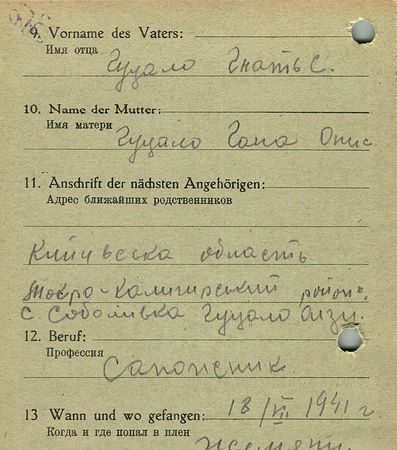 9. Vorname des Vaters:
Имя отца
Гуцало Гнать С.
10. Name der Mutter:
Имя матери
Гуцало Гапа Опис
11. Anschrift der nächsten Angehörigen:
Адрес ближайших родственников
область
Мокро-Калигирський район.
с. Соболивка Гуцало
12. Beruf:
Профессия
Сапожник
13 Wann und wo gefangen: 18/VII 1941 г.
Когда и где попал в плен